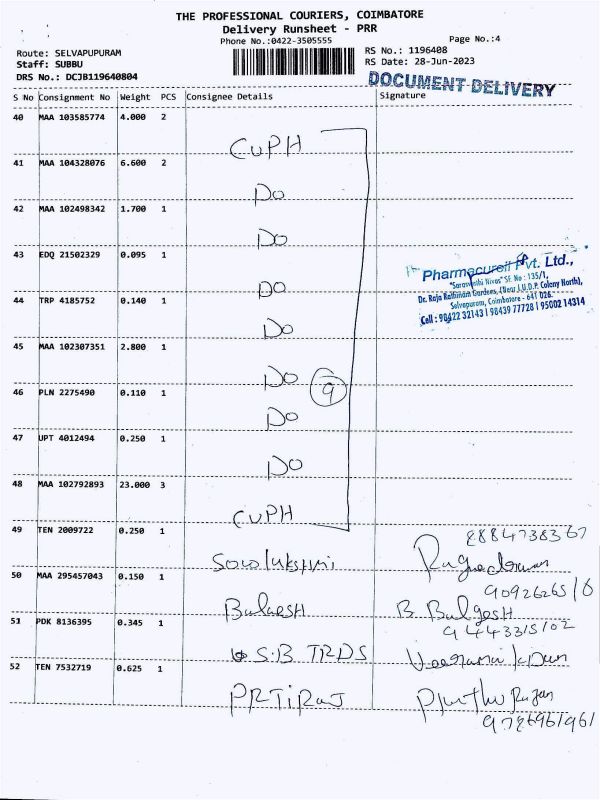 THE PROFESSIONAL COURIERS, COIMBATORE
Delivery Runsheet - PRR
Phone No.:0422-3505555
Page No.:4
Route: SELVAPUPURAM
RS No.: 1196408
Staff: SUBBU
RS Date: 28-Jun-2023
DRS No.: DCJB119640804
DOCUMENT DELIVERY
S No Consignment No Weight PCS Consignee Details Signature
40 MAA 103585774 4.000 2 CUPH
41 MAA 104328076 6.600 2 DO
42 MAA 102498342 1.700 1 DO
43 EDQ 21502329 0.095 1 DO
Pharmacureil Pvt. Ltd.,
"Saraswathi Nivas" SF. No : 135/1,
Dr. Raja Rathinam Gardens, (Near T.U.D.P. Colony North),
Selvapuram, Coimbatore - 641 026.
Cell : 98422 32143 | 98439 77728 | 95002 14314
44 TRP 4185752 0.140 1 DO
45 MAA 102307351 2.800 1 DO
9
46 PLN 2275490 0.110 1 DO
47 UPT 4012494 0.250 1 DO
48 MAA 102792893 23.000 3 CUPH
49 TEN 2009722 0.250 1
8884738367
50 MAA 295457043 0.150 1 Balgesh B. Balgesh
9092626510
51 PDK 8136395 0.345 1 S.B TRDS
9443315102
52 TEN 7532719 0.625 1 PRTIRAJ
9786961961